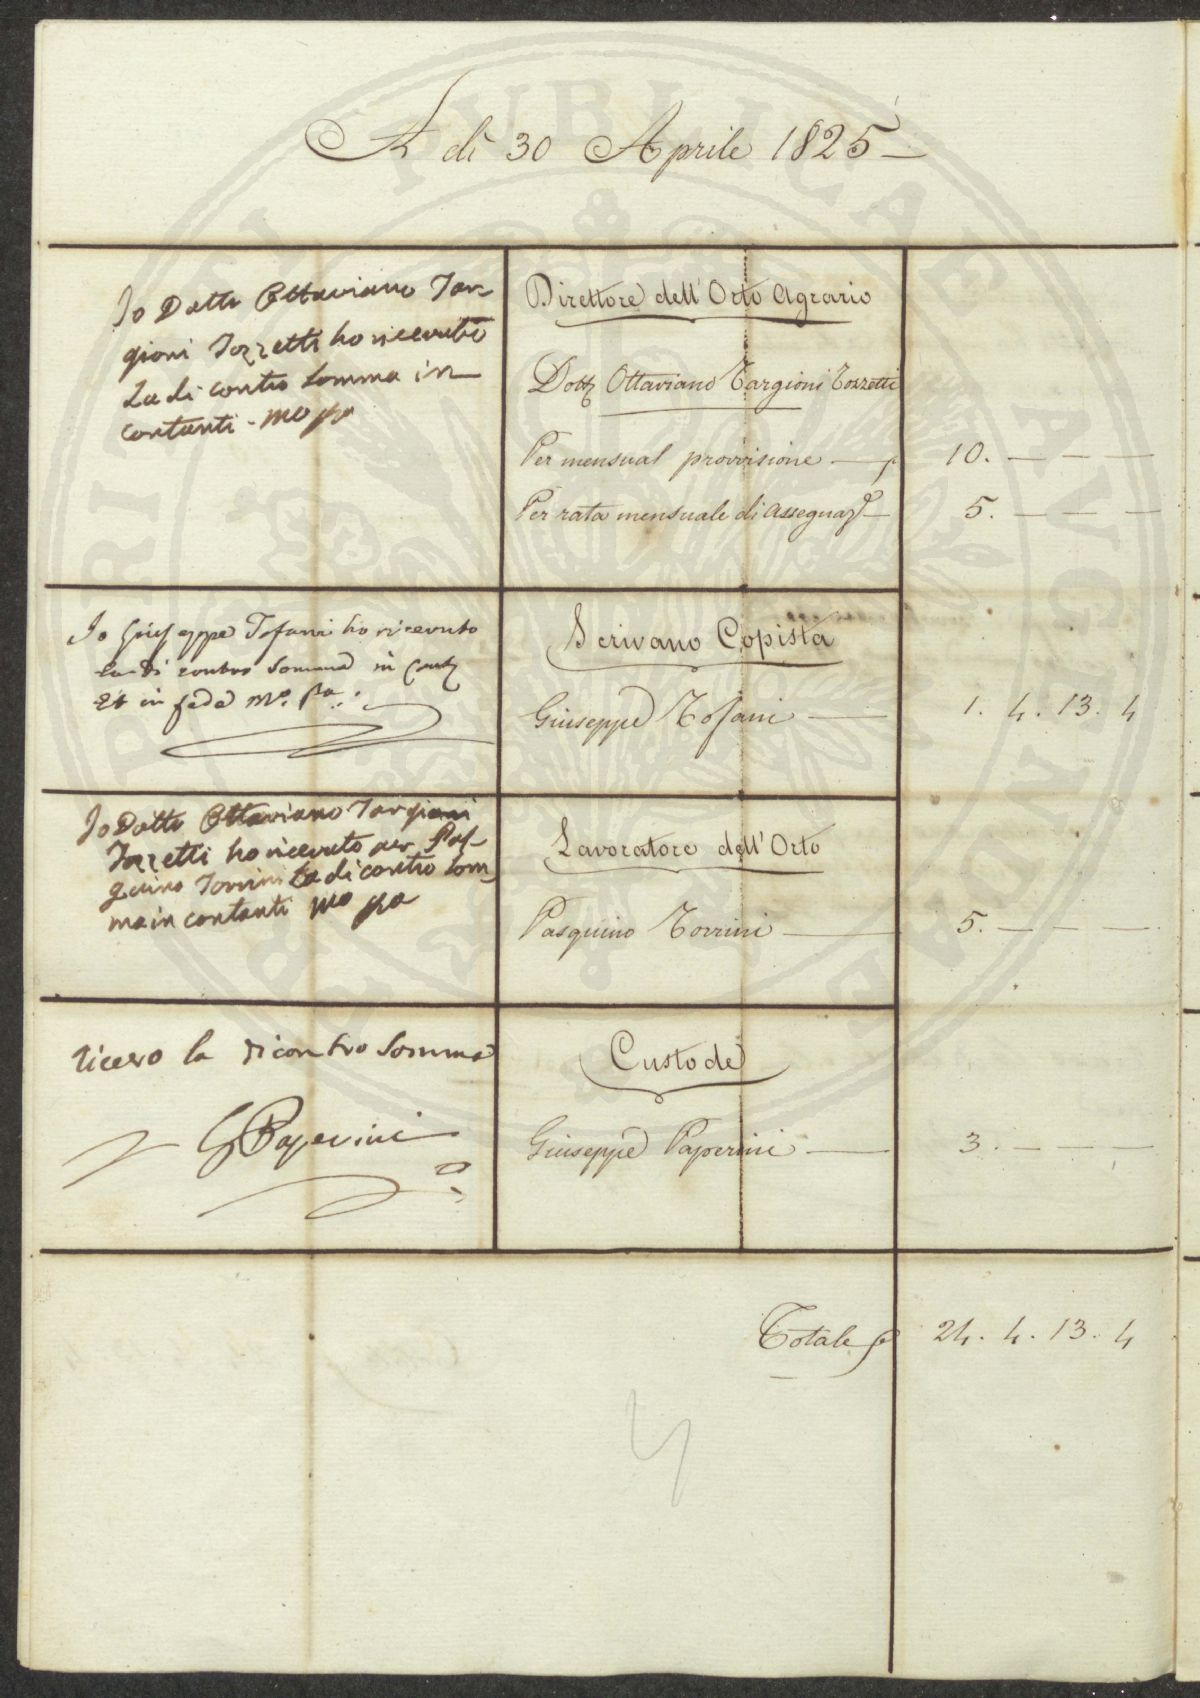 A dì 30 Aprile 1825
Io Dottr Ottaviano Tar-
gioni Tozzetti ho ricevuto
La di contro Somma in
contanti - mo pa
Direttore dell'Orto Agrario
Dott Ottaviano Targioni Tozzetti
Per mensual provvisione
10. — — —
Per rata mensuale di Assegnaz
5. — — —
Io Giuseppe Tofani ho ricevuto
la di contro Somma in
Et in fede mo. pa.
Scrivano Copista
Giuseppe Tofani —
1. 4. 13. 4
Io Dottr Ottaviano Targioni
Tozzetti ho ricevuto per Pas-
quino Torrini La di contro Som-
ma in contanti mo pa
Lavoratore dell'Orto
Pasquino Torrini —
5. — — —
ricevo la di contro Somma
G Paperini
Custode
Giuseppe Paperini —
3. — — —
Totale
24. 4. 13. 4